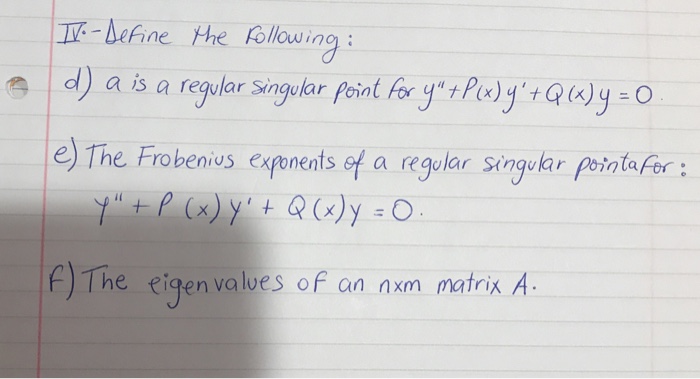 IV.- Define the following:
d) a is a regular singular point for y" + P(x) y' + Q(x) y = 0.
e) The Frobenius exponents of a regular singular point a for:
y" + P (x) y' + Q (x) y = 0.
f) The eigenvalues of an nxm matrix A.